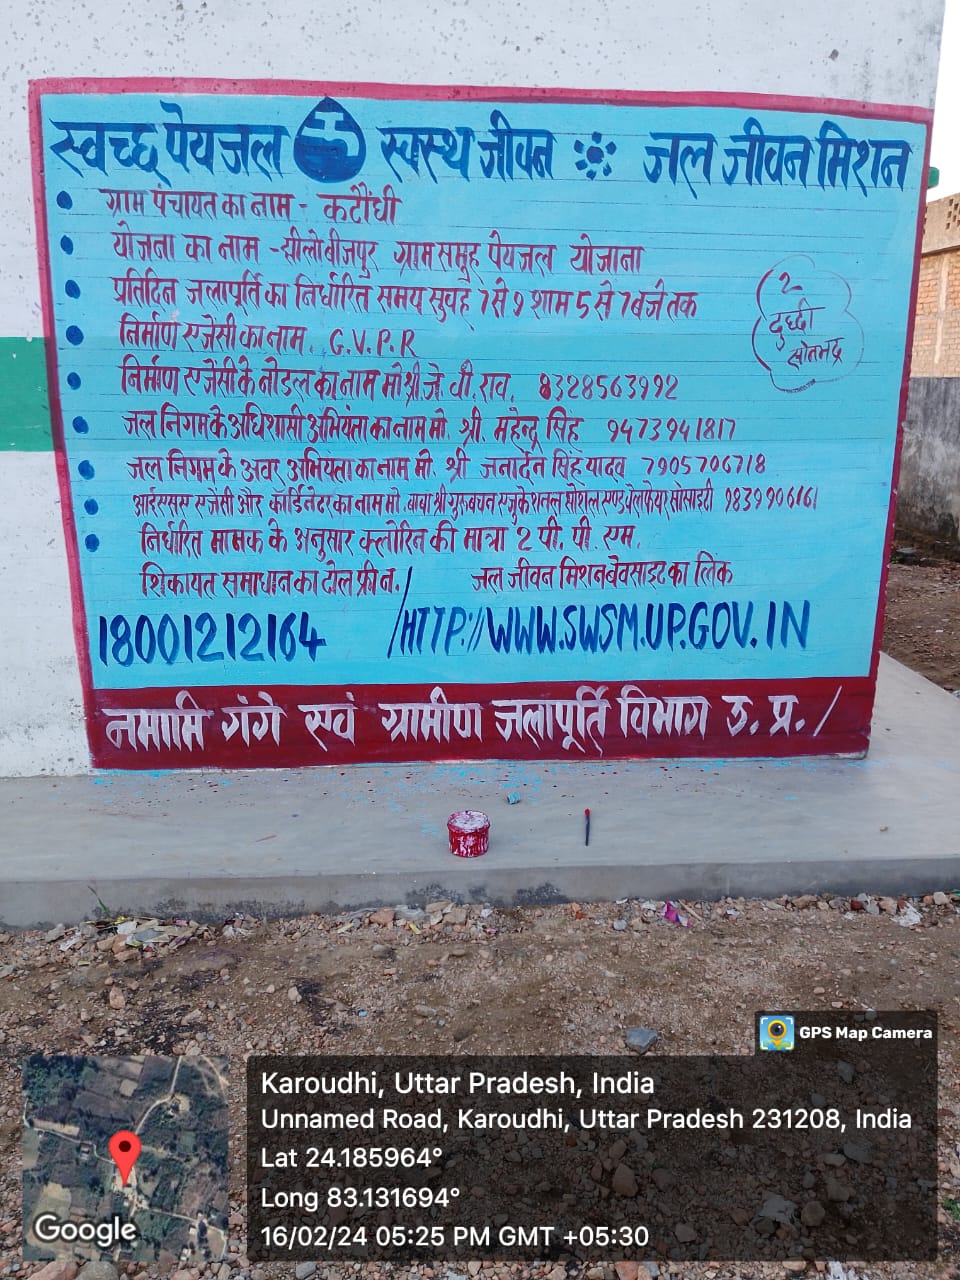 स्वच्छ पेयजल स्वस्थ जीवन जल जीवन मिशन
ग्राम पंचायत का नाम - कटौंधी
योजना का नाम - झीलो बीजपुर ग्राम समूह पेयजल योजाना
प्रतिदिन जलापूर्ति का निर्धारित समय सुवह 7 से 9 शाम 5 से 7 बजे तक
2
दुध्धी
सोनभद्र
निर्माण एजेंसी का नाम. G.V.P.R
निर्माण एजेंसी के नोडल का नाम मो श्री. जे. वी. राव. 8328563992
जल निगम के अधिशासी अभियंता का नाम मो. श्री. महेन्द्र सिंह 9473941817
जल निगम के अवर अभियंता का नाम मो. श्री जनार्दन सिंह यादव 7905706718
आईएसएस एजेंसी और कॉर्डिनेटर का नाम मो. बाबा श्री गुरुबचन एजुकेशनल सोशल एण्ड वेलफेयर सोसाइटी 9839906161
निर्धारित मानक के अनुसार क्लोरिन की मात्रा 2 पी. पी. एम.
शिकायत समाधान का टोल फ्री न. / जल जीवन मिशन बेवसाइट का लिंक
18001212164 /HTTP://WWW.SWSM.UP.GOV.IN
नमामि गंगे एवं ग्रामीण जलापूर्ति विभाग उ. प्र. /
GPS Map Camera
Karoudhi, Uttar Pradesh, India
Unnamed Road, Karoudhi, Uttar Pradesh 231208, India
Lat 24.185964°
Long 83.131694°
16/02/24 05:25 PM GMT +05:30
Google